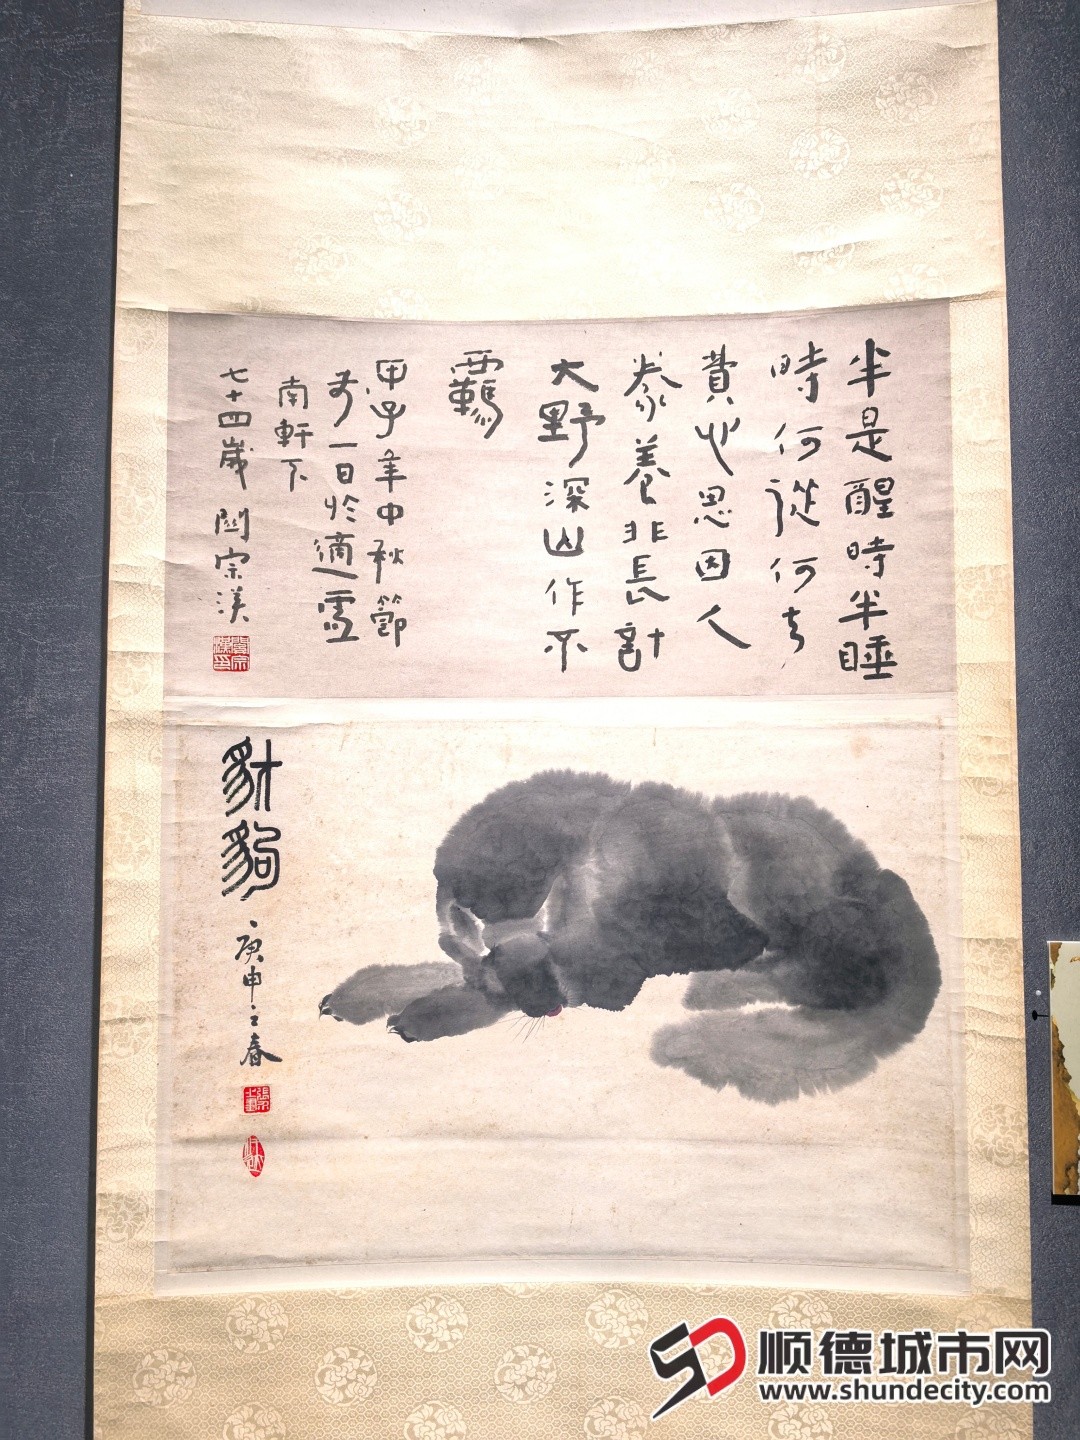 半是醒時半睡
時何從何去
費心思因人
豢養非長計
大野深山作不
羈
甲子年中秋節
前一日於適廬
南軒下
七十四歲 關宗漢
豺狗
庚申立春
顺德城市网
www.shundecity.com